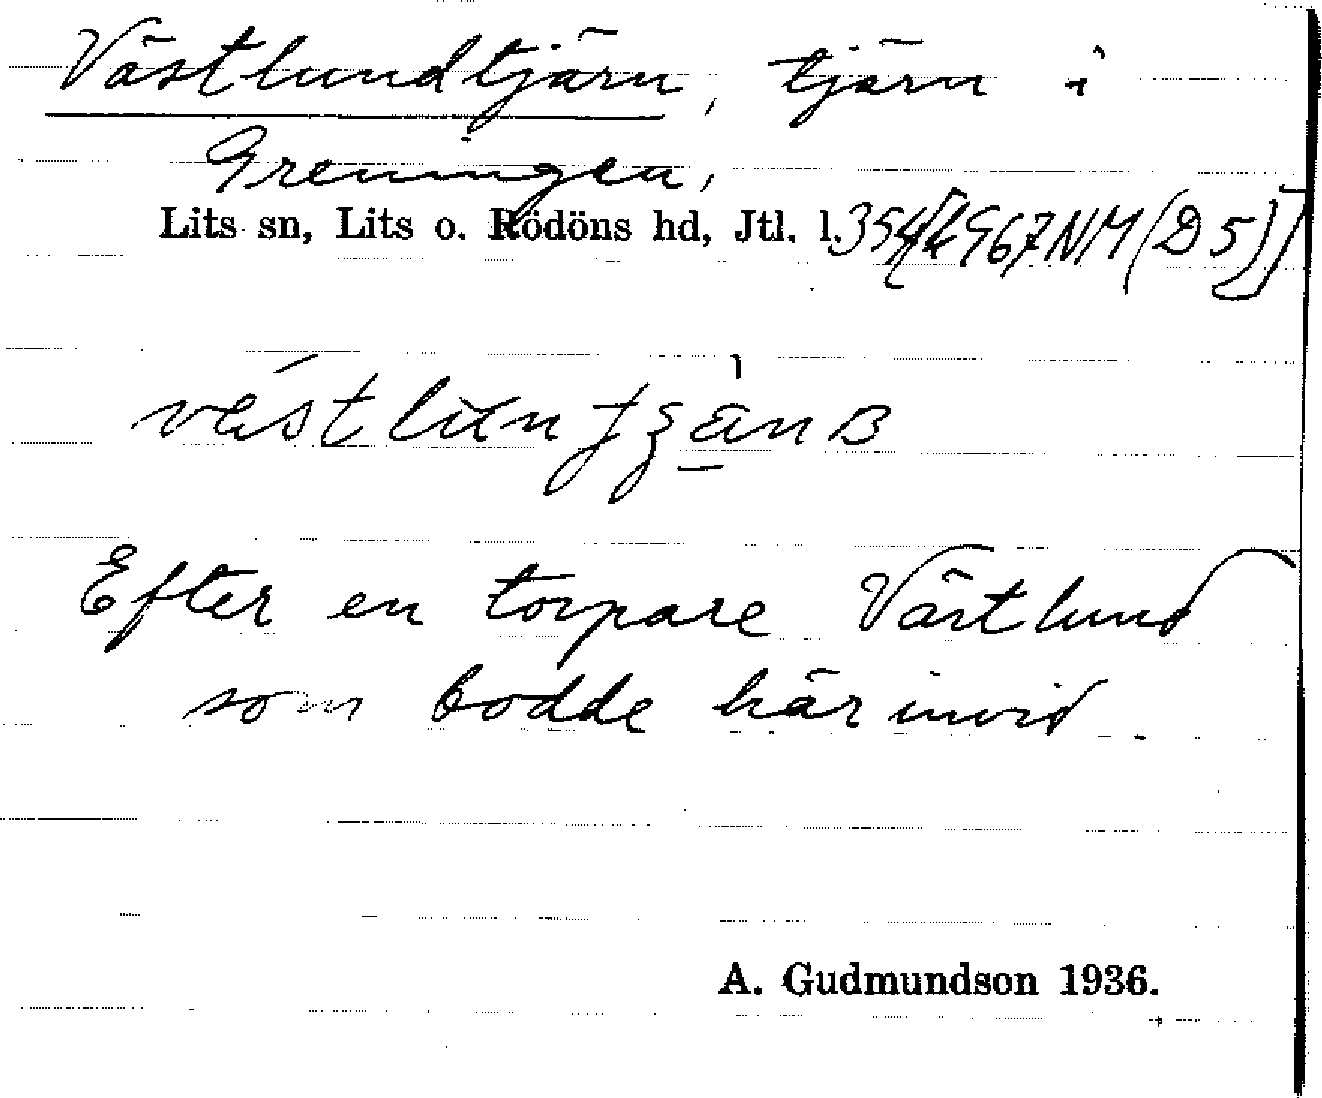 Västlundtjärn, tjärn i
Greningen,
Lits sn, Lits o. Rödöns hd, Jtl. l.
Efter en torpare Västlund
som bodde här invid.
A. Gudmundson 1936.